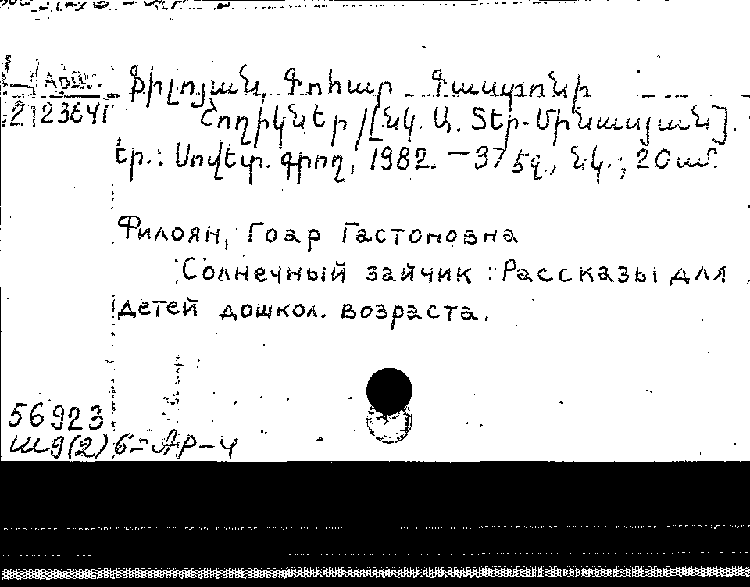 Ֆիլոյան, Գոհար Գաստոնի
Շողիկներ / [նկ. Ա. Տեր-Մինասյան].
Եր.: Սովետ. գրող, 1982. — 37 էջ, նկ.; 20 սմ.
Филоян, Гоар Гастоновна
Солнечный зайчик : Рассказы для
детей дошкол. возраста.
56923